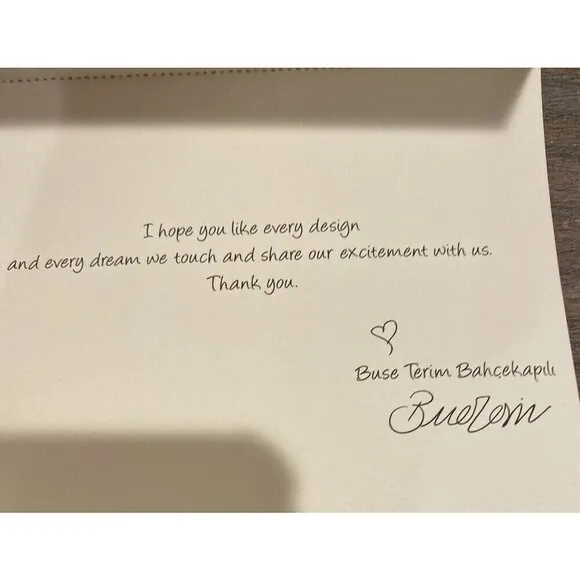 I hope you like every design
and every dream we touch and share our excitement with us.
Thank you.
Buse Terim Bahçekapılı